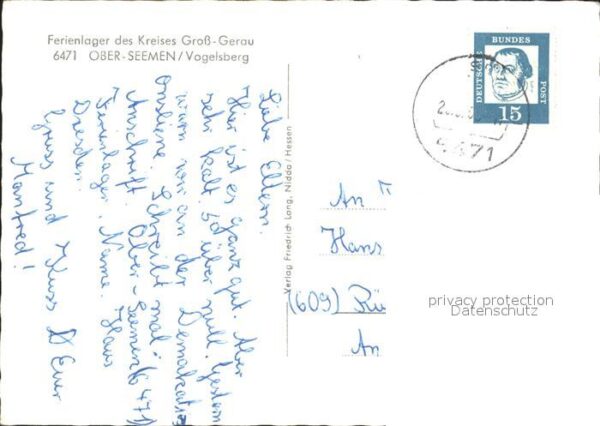 Ferienlager des Kreises Groß-Gerau
6471 OBER-SEEMEN/Vogelsberg
DEUTSCHE
BUNDES
POST
15
6471
Liebe Eltern.
Hier ist es ganz gut. Aber
sehr kalt. 5° über null. Gestern
waren wir an der Demarkations
Schreibt mal.
Anschrift. Ober-Seemen 6471
Ferienlager. Name. Haus
Dresden.
Gruss und Kuss Euer
Manfred!
Verlag Friedrich Lang, Nidda/Hessen
An
Hans
(609) Rü
An
privacy protection
Datenschutz